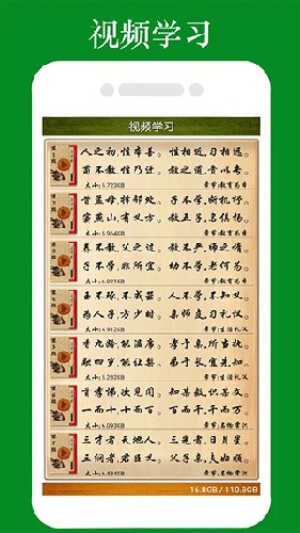 视频学习
视频学习
人之初,性本善。 性相近,习相远。
苟不教,性乃迁。 教之道,贵以专。
大小:5.723GB 章节:教育为本
昔孟母,择邻处。 子不学,断机杼。
窦燕山,有义方。 教五子,名俱扬。
章节:教育为本
养不教,父之过。 教不严,师之惰。
子不学,非所宜。 幼不学,老何为。
章节:教育为本
玉不琢,不成器。 人不学,不知义。
为人子,方少时。 亲师友,习礼仪。
香九龄,能温席。 孝于亲,所当执。
融四岁,能让梨。 弟于长,宜先知。
首孝悌,次见闻。 知某数,识某文。
一而十,十而百。 百而千,千而万。
三才者,天地人。 三光者,日月星。
三纲者,君臣义。 父子亲,夫妇顺。
16.8GB / 110.8GB